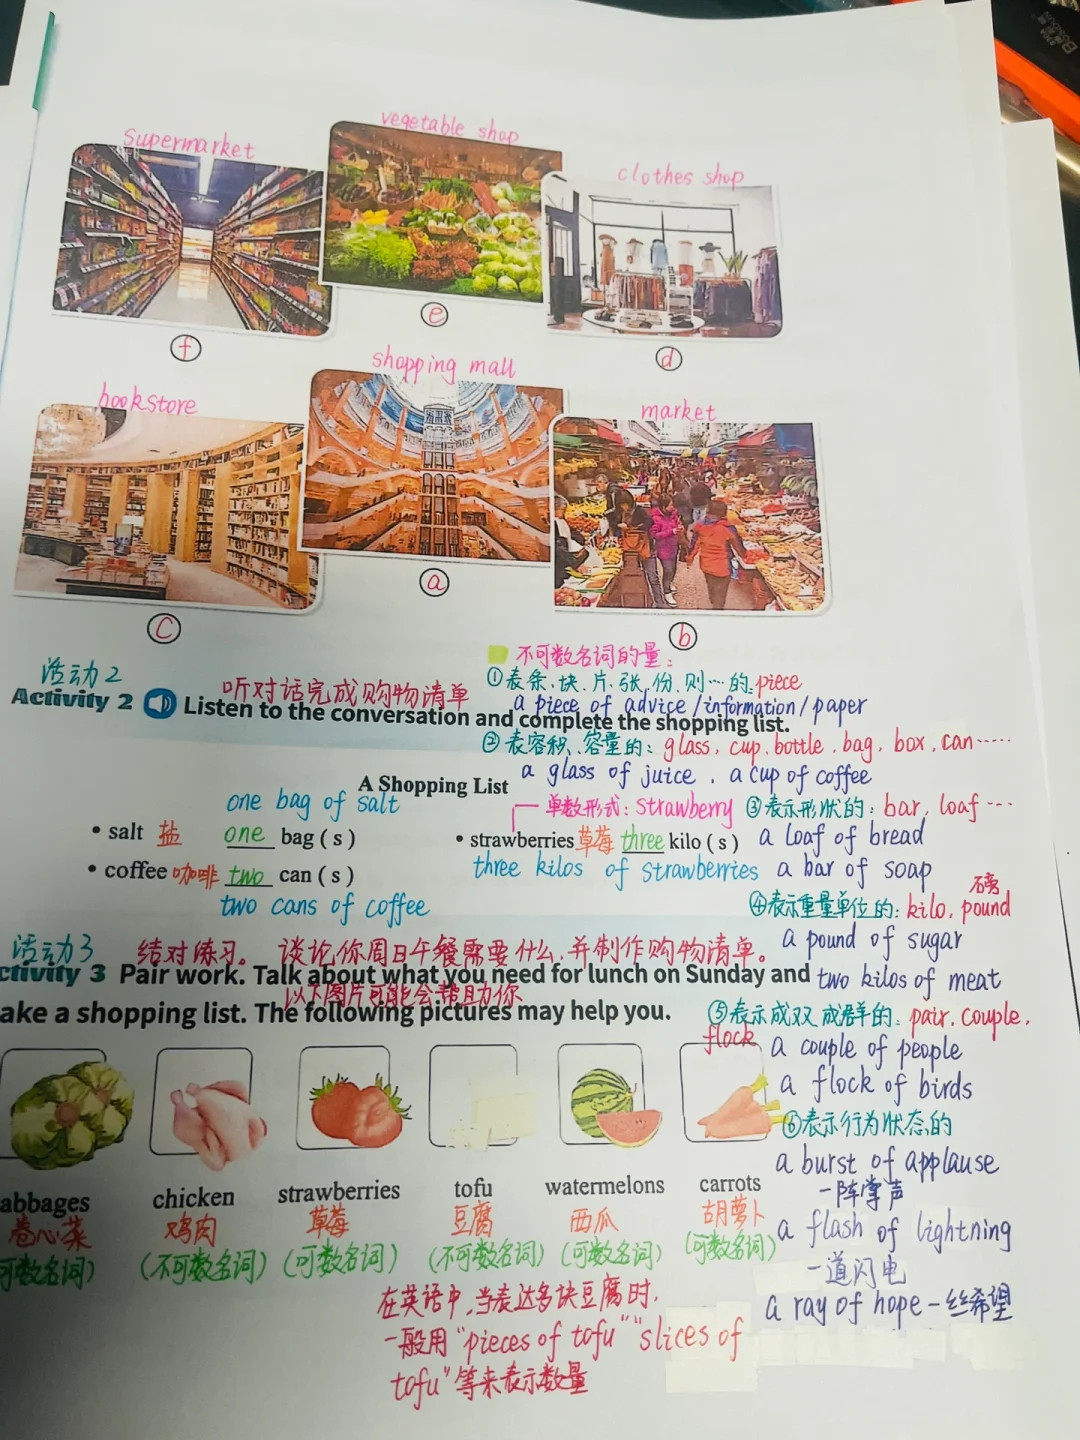 Supermarket
vegetable shop
clothes shop
f
e
d
bookstore
shopping mall
market
c
a
b
活动2
听对话完成购物清单
Activity 2 Listen to the conversation and complete the shopping list.
不可数名词的量:
①表条、块、片、张、份、则…的:piece
a piece of advice/information/paper
②表容积、容量的: glass, cup, bottle, bag, box, can……
a glass of juice, a cup of coffee
A Shopping List
one bag of salt
单数形式: strawberry
• salt 盐 one bag (s)
• strawberries 草莓 three kilo (s)
• coffee 咖啡 two can (s)
three kilos of strawberries
two cans of coffee
③表示形状的: bar, loaf…
a loaf of bread
a bar of soap
磅
④表示重量单位的: kilo, pound
a pound of sugar
two kilos of meat
活动3
结对练习。谈论你周日午餐需要什么,并制作购物清单。
ctivity 3 Pair work. Talk about what you need for lunch on Sunday and
以下图片可能会帮助你
ake a shopping list. The following pictures may help you.
⑤表示成双成群的: pair, couple,
flock
a couple of people
a flock of birds
⑥表示行为状态的
a burst of applause
一阵掌声
a flash of lightning
一道闪电
a ray of hope 一丝希望
abbages chicken strawberries tofu watermelons carrots
卷心菜 鸡肉 草莓 豆腐 西瓜 胡萝卜
可数名词) (不可数名词) (可数名词) (不可数名词) (可数名词) (可数名词)
在英语中,当表达多块豆腐时,
一般用"pieces of tofu" "slices of
tofu"等来表示数量